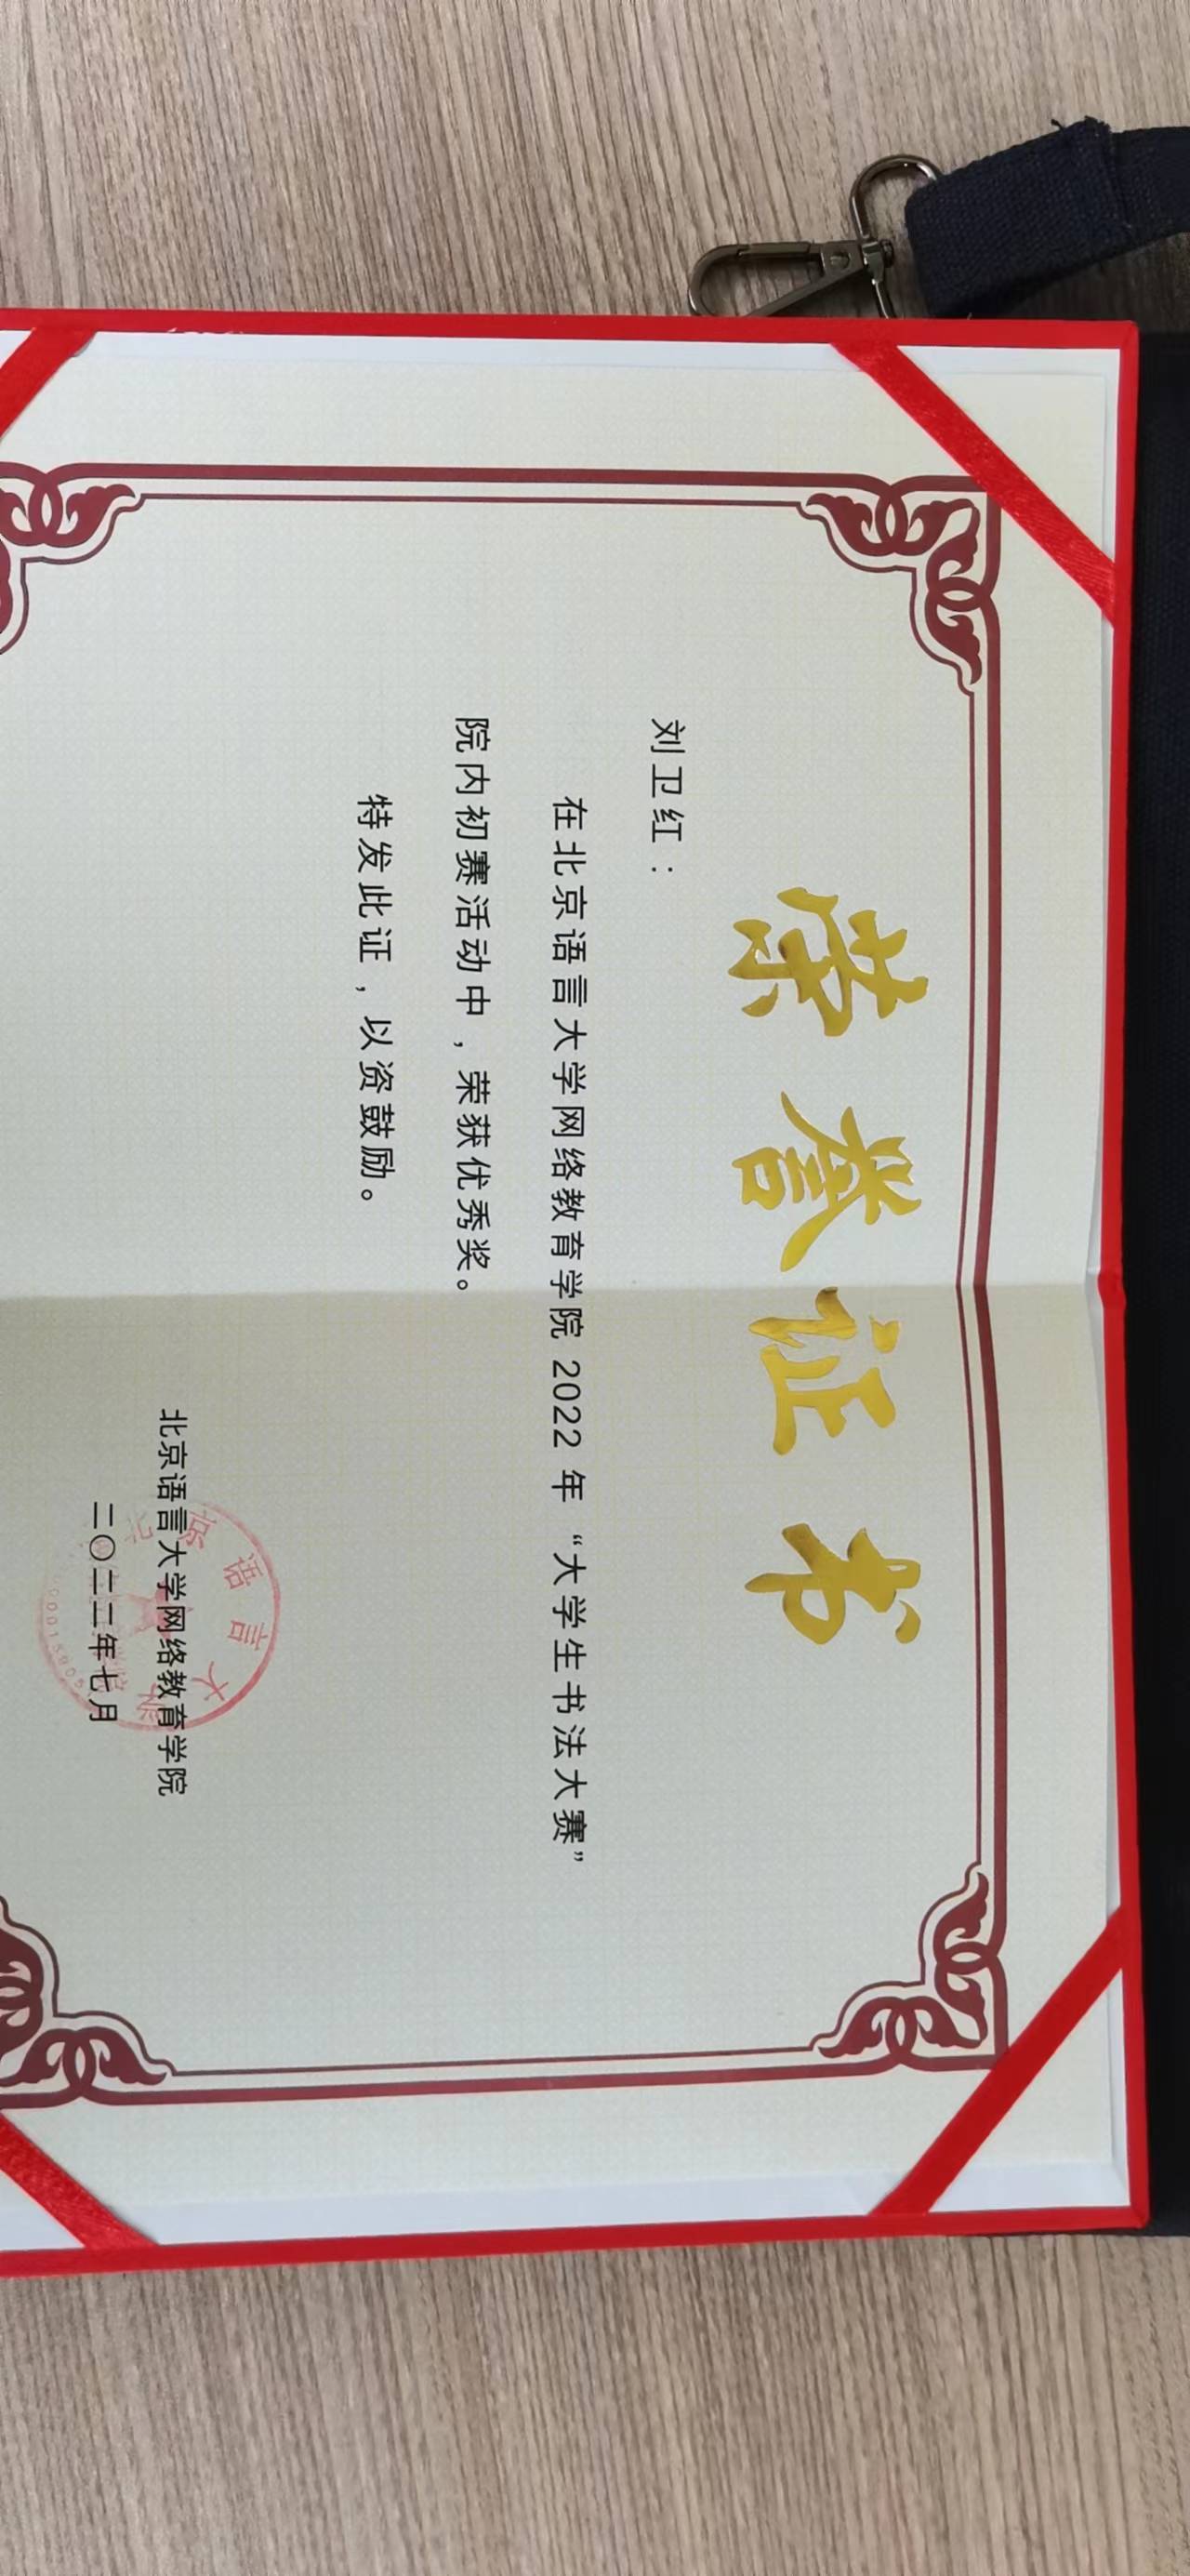 荣誉证书
刘卫红：
在北京语言大学网络教育学院 2022 年 “大学生书法大赛”
院内初赛活动中，荣获优秀奖。
特发此证，以资鼓励。
北京语言大学网络教育学院
二〇二二年七月
京语言大学